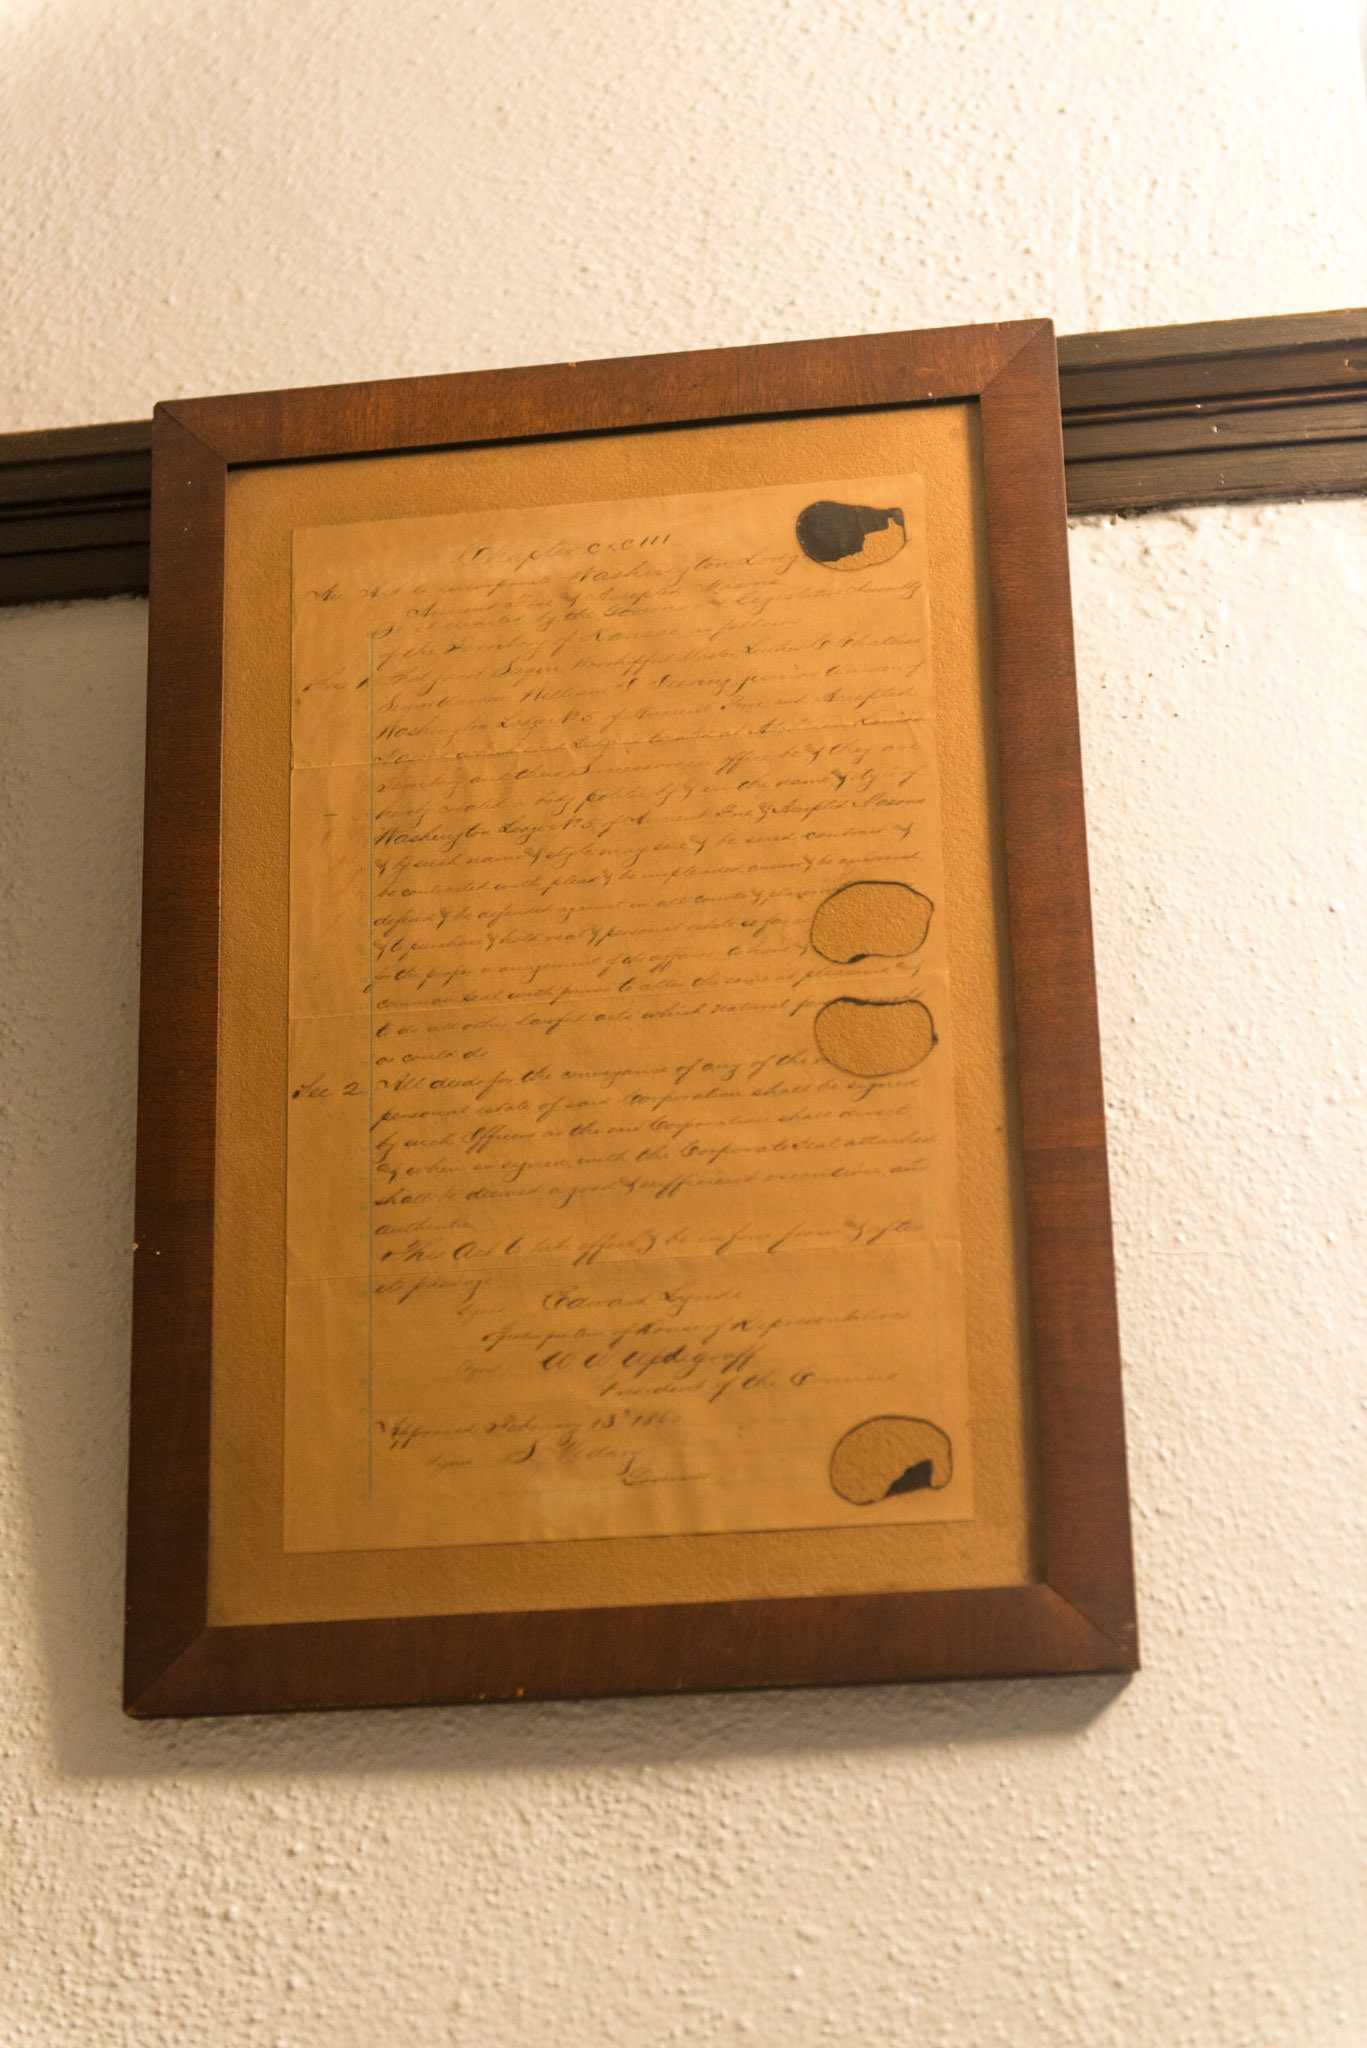 Chapter CXCIII
An Act to incorporate Washington Lodge
Ancient Free & Accepted Masons
Be it enacted by the Governor & Legislative Assembly
of the Territory of Kansas as follows
Sec 1 That Jacob Saqui Worshipfull Master, Luther C Challiss
Senior Warden William Junior Warden of
Washington Lodge No. 5 of Ancient Free and Accepted
Masons which said Lodge is located at Atchison Kansas
Territory and their Successors in office be & they are
hereby created a body politic by & in the name & style of
Washington Lodge No. 5, of Ancient Free & Accepted Masons
& by such name & style may sue & be sued contract &
be contracted with plead & be impleaded, answer & be answered
defend & be defended against in all courts & places
& to purchase & hold real & personal estate so far as
for the proper management of its affairs, to have &
common seal with power to alter the same at pleasure &
to do all other Lawful acts which natural
or could do
Sec 2. All deeds for the conveyance of any of the
personal estate of said Corporation shall be signed
by such Officers as the said Corporation shall direct
& when so signed, with the Corporate Seal attached
shall be deemed a good & sufficient execution, and
authentic
This Act to take effect & be in force from & after
its passage
Signed Edward Lynde
Speaker pro tem of House of Representatives
Signed W. W. Updegraff
President of the Council
Approved February 13 1860
Signed S Medary
Governor